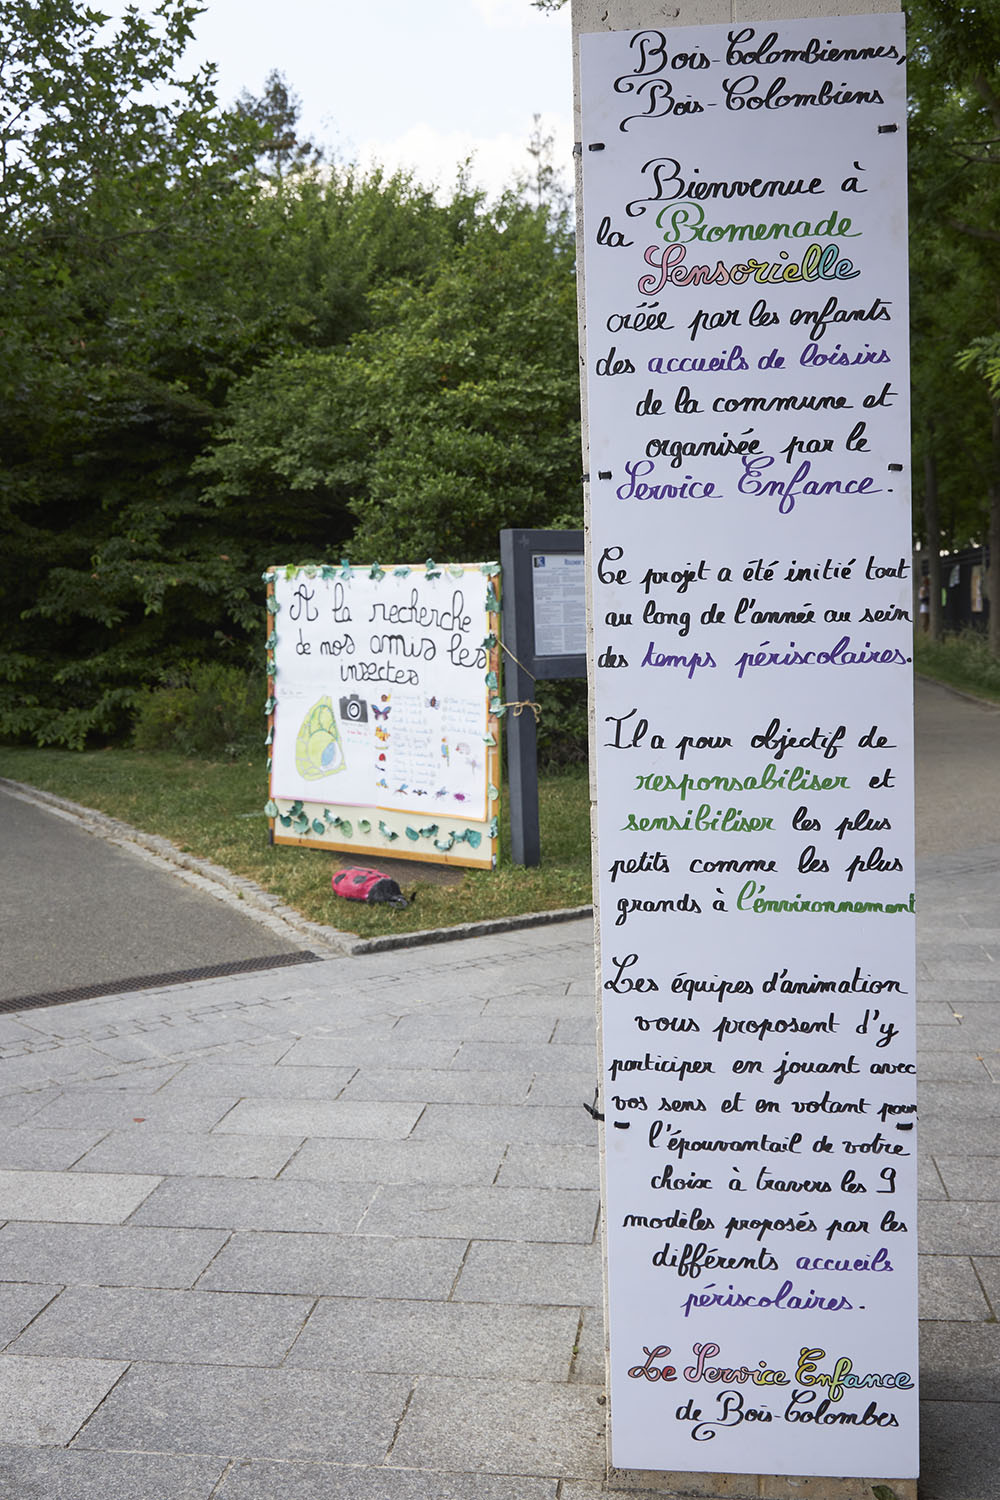 Bois-Colombiennes,
Bois-Colombiens
Bienvenue à
la Promenade
Sensorielle
créée par les enfants
des accueils de loisirs
de la commune et
organisée par le
Service Enfance.
Ce projet a été initié tout
au long de l'année au sein
des temps périscolaires.
Il a pour objectif de
responsabiliser et
sensibiliser les plus
petits comme les plus
grands à l'environnement
Les équipes d'animation
vous proposent d'y
participer en jouant avec
vos sens et en votant pour
l'épouvantail de votre
choix à travers les 9
modèles proposés par les
différents accueils
périscolaires.
Le Service Enfance
de Bois-Colombes
A la recherche
de nos amis les
insectes